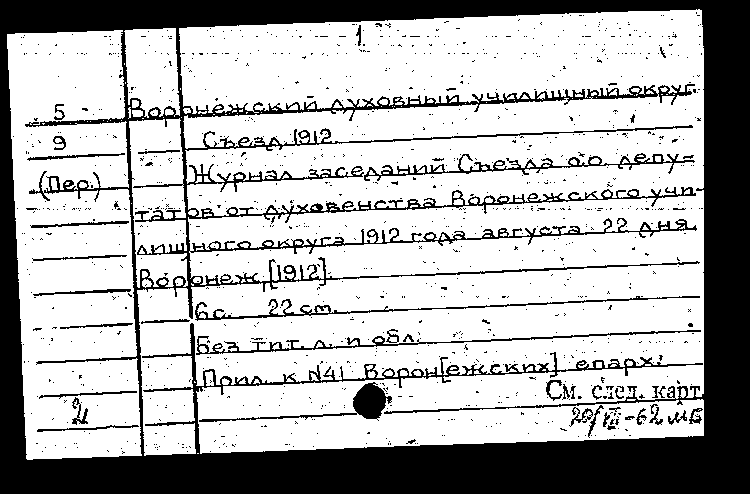 1
5 Воронежский духовный училищный округ.
9 Съезд. 1912.
(Пер.) Журнал заседаний Съезда о.о. депу=
татов от духовенства Воронежского учи-
лищного округа 1912 года августа 22 дня.
Воронеж, [1912].
6 с. 22 см.
Без тит. л. и обл.
Прил. к №41 Ворон[ежских] епарх.
См. след. карт.
20/VII-62 МБ